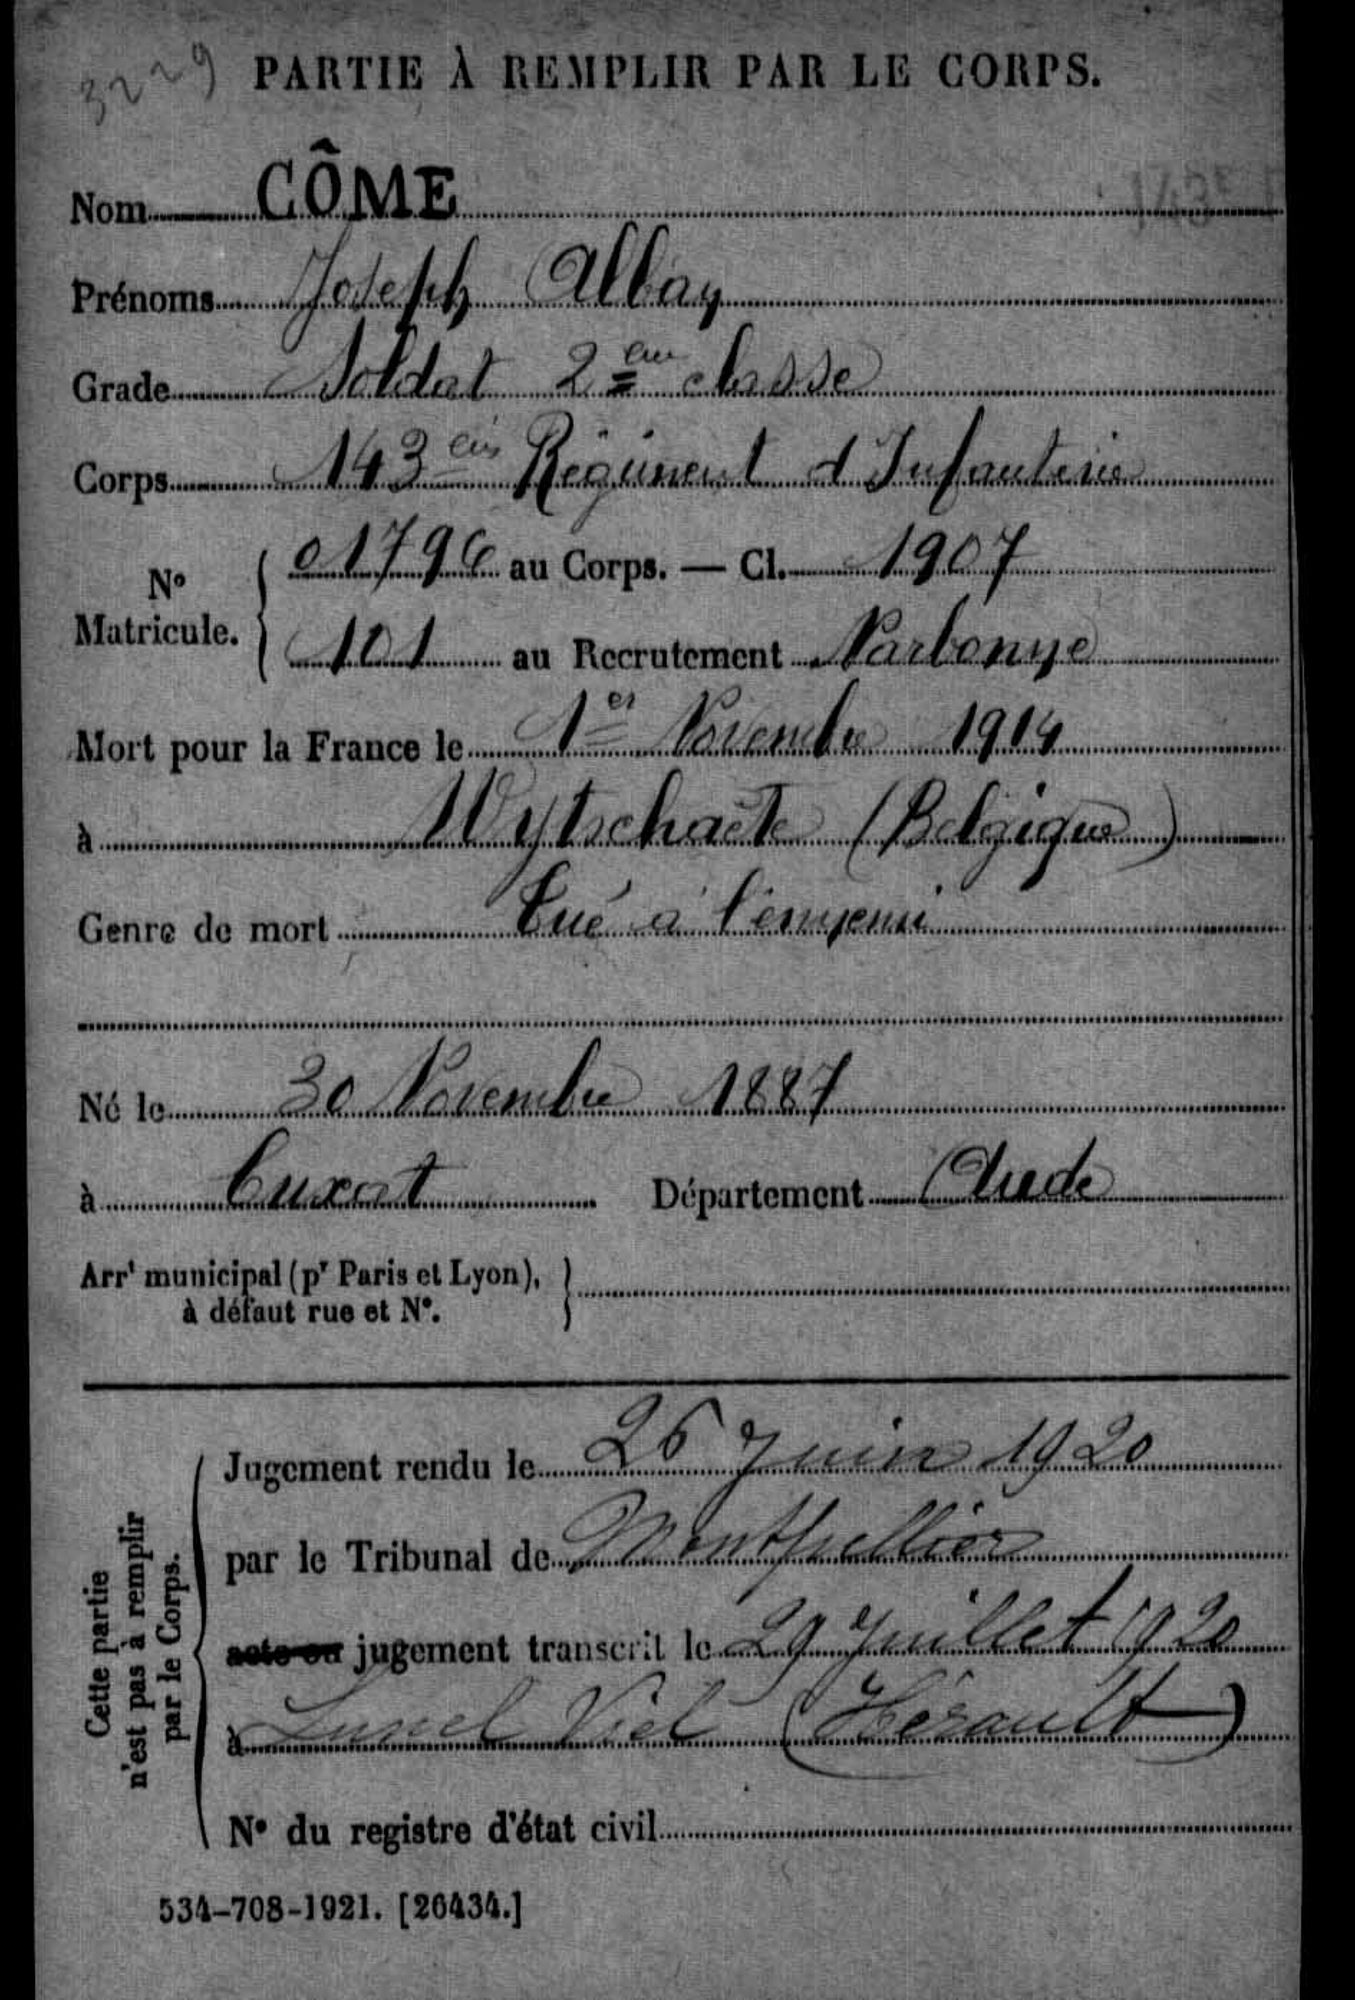 3229
PARTIE À REMPLIR PAR LE CORPS.
Nom CÔME
Prénoms Joseph Albay
Grade Soldat 2ème classe
Corps 143eme Régiment d'Infanterie
N° Matricule. 01796 au Corps. — Cl. 1907
101 au Recrutement Narbonne
Mort pour la France le 1er Novembre 1914
à Wytschaete (Belgique)
Genre de mort Tué à l'ennemi
Né le 30 Novembre 1887
à Cuxat Département Aude
Arrt municipal (pr Paris et Lyon),
à défaut rue et N°.
Cette partie
n'est pas à remplir
par le Corps.
Jugement rendu le 26 Juin 1920
par le Tribunal de Montpellier
acte ou jugement transcrit le 29 Juillet 1920
à Lunel Viel (Hérault)
N° du registre d'état civil
534-708-1921. [26434.]